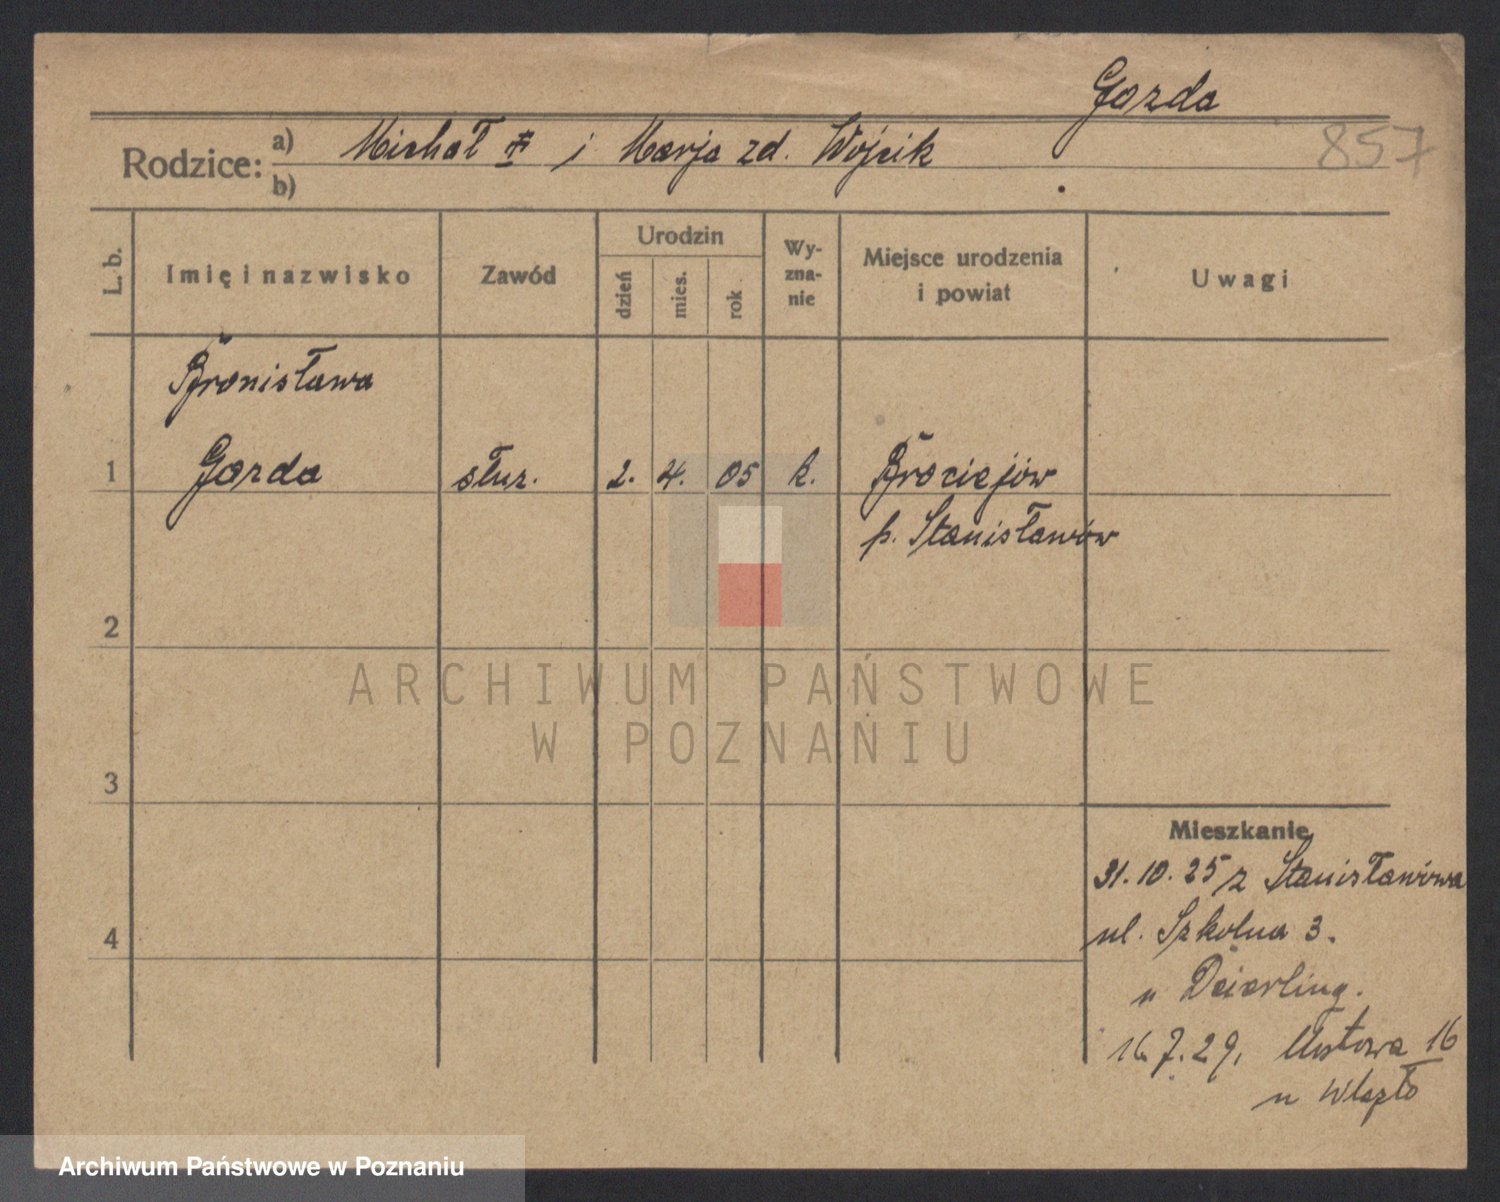 Gazda
857
Rodzice: a) Michał i Marja zd. Wójcik
b)
L. b.
Imię i nazwisko
Zawód
Urodzin
dzień
mies.
rok
Wy-
zna-
nie
Miejsce urodzenia
i powiat
Uwagi
Bronisława
1 Gazda służ. 2. 4. 05 k.
p. Stanisławów
2
ARCHIWUM PAŃSTWOWE
W POZNANIU
3
Mieszkanie
31.10.25 z Stanisławowa
4 ul. Szkolna 3.
u Deierling.
16.7.29. Mostowa 16
u
Archiwum Państwowe w Poznaniu